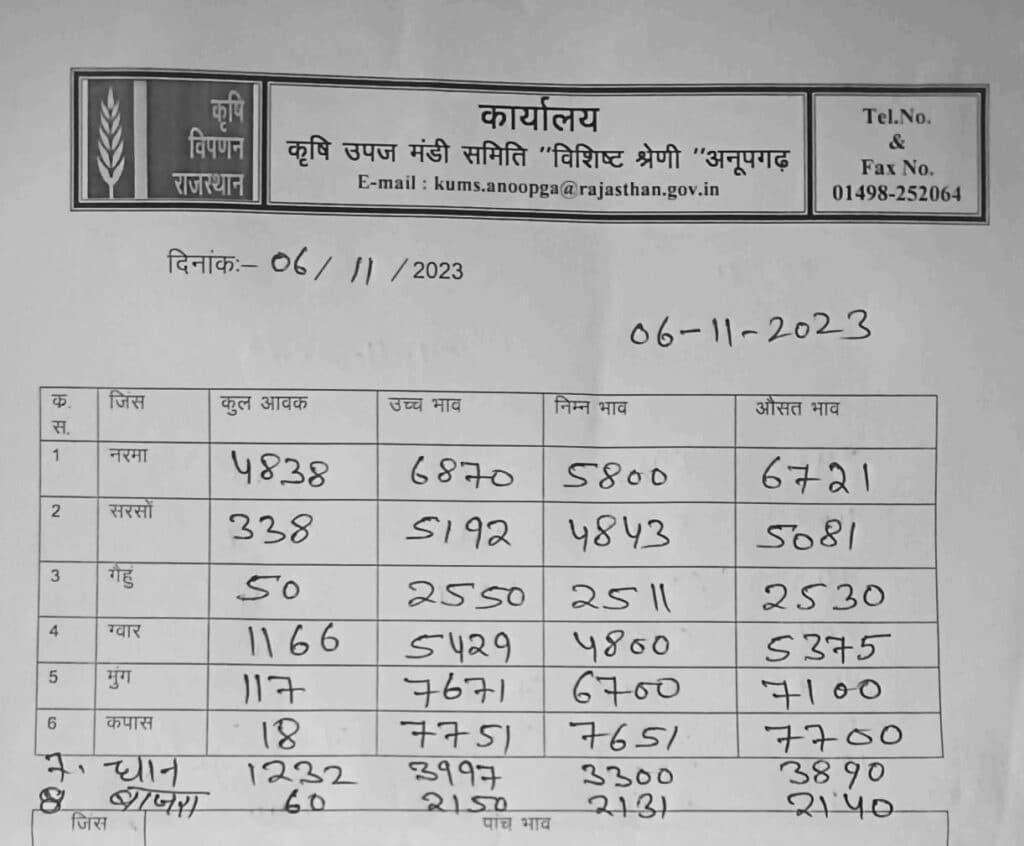 कृषि
विपणन
राजस्थान
कार्यालय
कृषि उपज मंडी समिति "विशिष्ट श्रेणी "अनूपगढ़
E-mail : kums.anoopga@rajasthan.gov.in
Tel.No.
&
Fax No.
01498-252064
दिनांकः– 06/11/2023
06-11-2023
क. स. जिंस कुल आवक उच्च भाव निम्न भाव औसत भाव
1 नरमा 4838 6870 5800 6721
2 सरसों 338 5192 4843 5081
3 गैहुं 50 2550 2511 2530
4 ग्वार 1166 5429 4800 5375
5 मुंग 117 7671 6700 7100
6 कपास 18 7751 7651 7700
7. धान 1232 3997 3300 3890
8 बाजरा 60 2150 2131 2140
जिंस पांच भाव